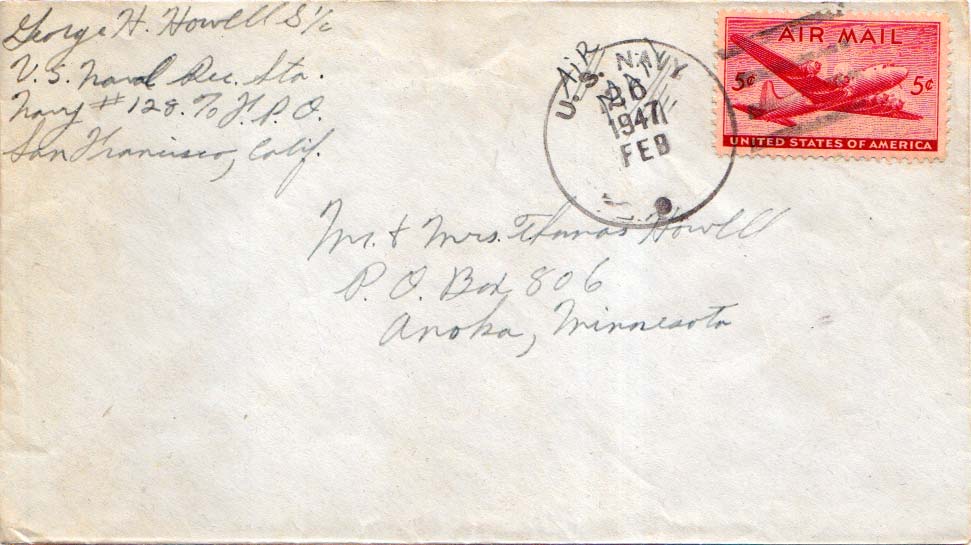 George H. Howell S 1/c
U.S. Naval Rec. Sta.
Navy # 128. % F.P.O.
San Francisco, Calif.
AIR
U.S. NAVY
1947
FEB
AIR MAIL
5¢ 5¢
UNITED STATES OF AMERICA
Mr. & Mrs. Thomas Howell
P. O. Box 806
Anoka, Minnesota